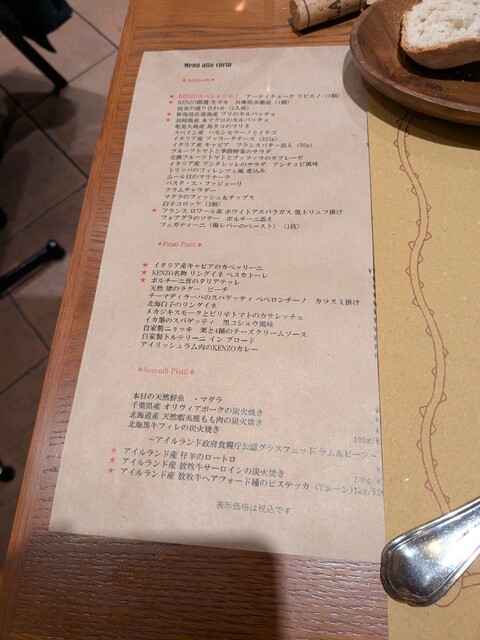 Menu alla carta
★Antipasti★
★ KENZOスペシャリテ！ アーティチョーク リピエノ（1個）
★ KENZO厳選 生ガキ 兵庫県赤穂産（1個）
前菜の盛り合わせ（2人前）
★ 新潟県佐渡島産 ブリのカルパッチョ
★ 長崎県産 本マグロのカルパッチョ
奄美大島産 島タコのマリネ
スペイン産 ハモンセラーノとイチゴ
イタリア産 ブッラータチーズ（125g）
イタリア産 キャビア フランスバター添え（50g）
フルーツトマトと季節野菜のサラダ
完熟フルーツトマトとブッファラのカプレーゼ
イタリア産 プンタレッレのサラダ アンチョビ風味
トリッパのフィレンツェ風 煮込み
ムール貝のマリナーラ
パスタ・エ・ファジョーリ
クラムチャウダー
マダラのフィッシュ＆チップス
白子コロッケ（2個）
★ フランス ロワール産 ホワイトアスパラガス 黒トリュフ掛け
フォアグラのソテー ポルチーニ添え
フェガティーニ（鶏レバーのペースト）（1枚）
★Primi Piatti★
★ イタリア産キャビアのカペッリーニ
★ KENZO名物 リングイネ ペスカトーレ
★ ポルチーニ茸のタリアテッレ
天然 猪のラグー ピーチ
チーマディラーパのスパゲッティ ペペロンチーノ カラスミ掛け
北海白子のリングイネ
メカジキスモークとピリ辛トマトのカサレッチェ
イカ墨のスパゲッティ 黒コショウ風味
自家製ニョッキ 栗と4種のチーズクリームソース
自家製トルテリーニ イン ブロード
アイリッシュラム肉のKENZOカレー
★Secondi Piatti★
本日の天然鮮魚 ・マダラ
千葉県産 オリヴィアポークの炭火焼き
北海道産 天然蝦夷鹿もも肉の炭火焼き
北海黒牛フィレの炭火焼き
100g/¥
～アイルランド政府食糧庁公認グラスフェッド ラム＆ビーフ～
★ アイルランド産 仔羊のロートロ
★ アイルランド産 放牧牛サーロインの炭火焼き 100g/¥
★ アイルランド産 放牧牛ヘアフォード種のビステッカ（Tボーン)1kg/¥
表示価格は税込です